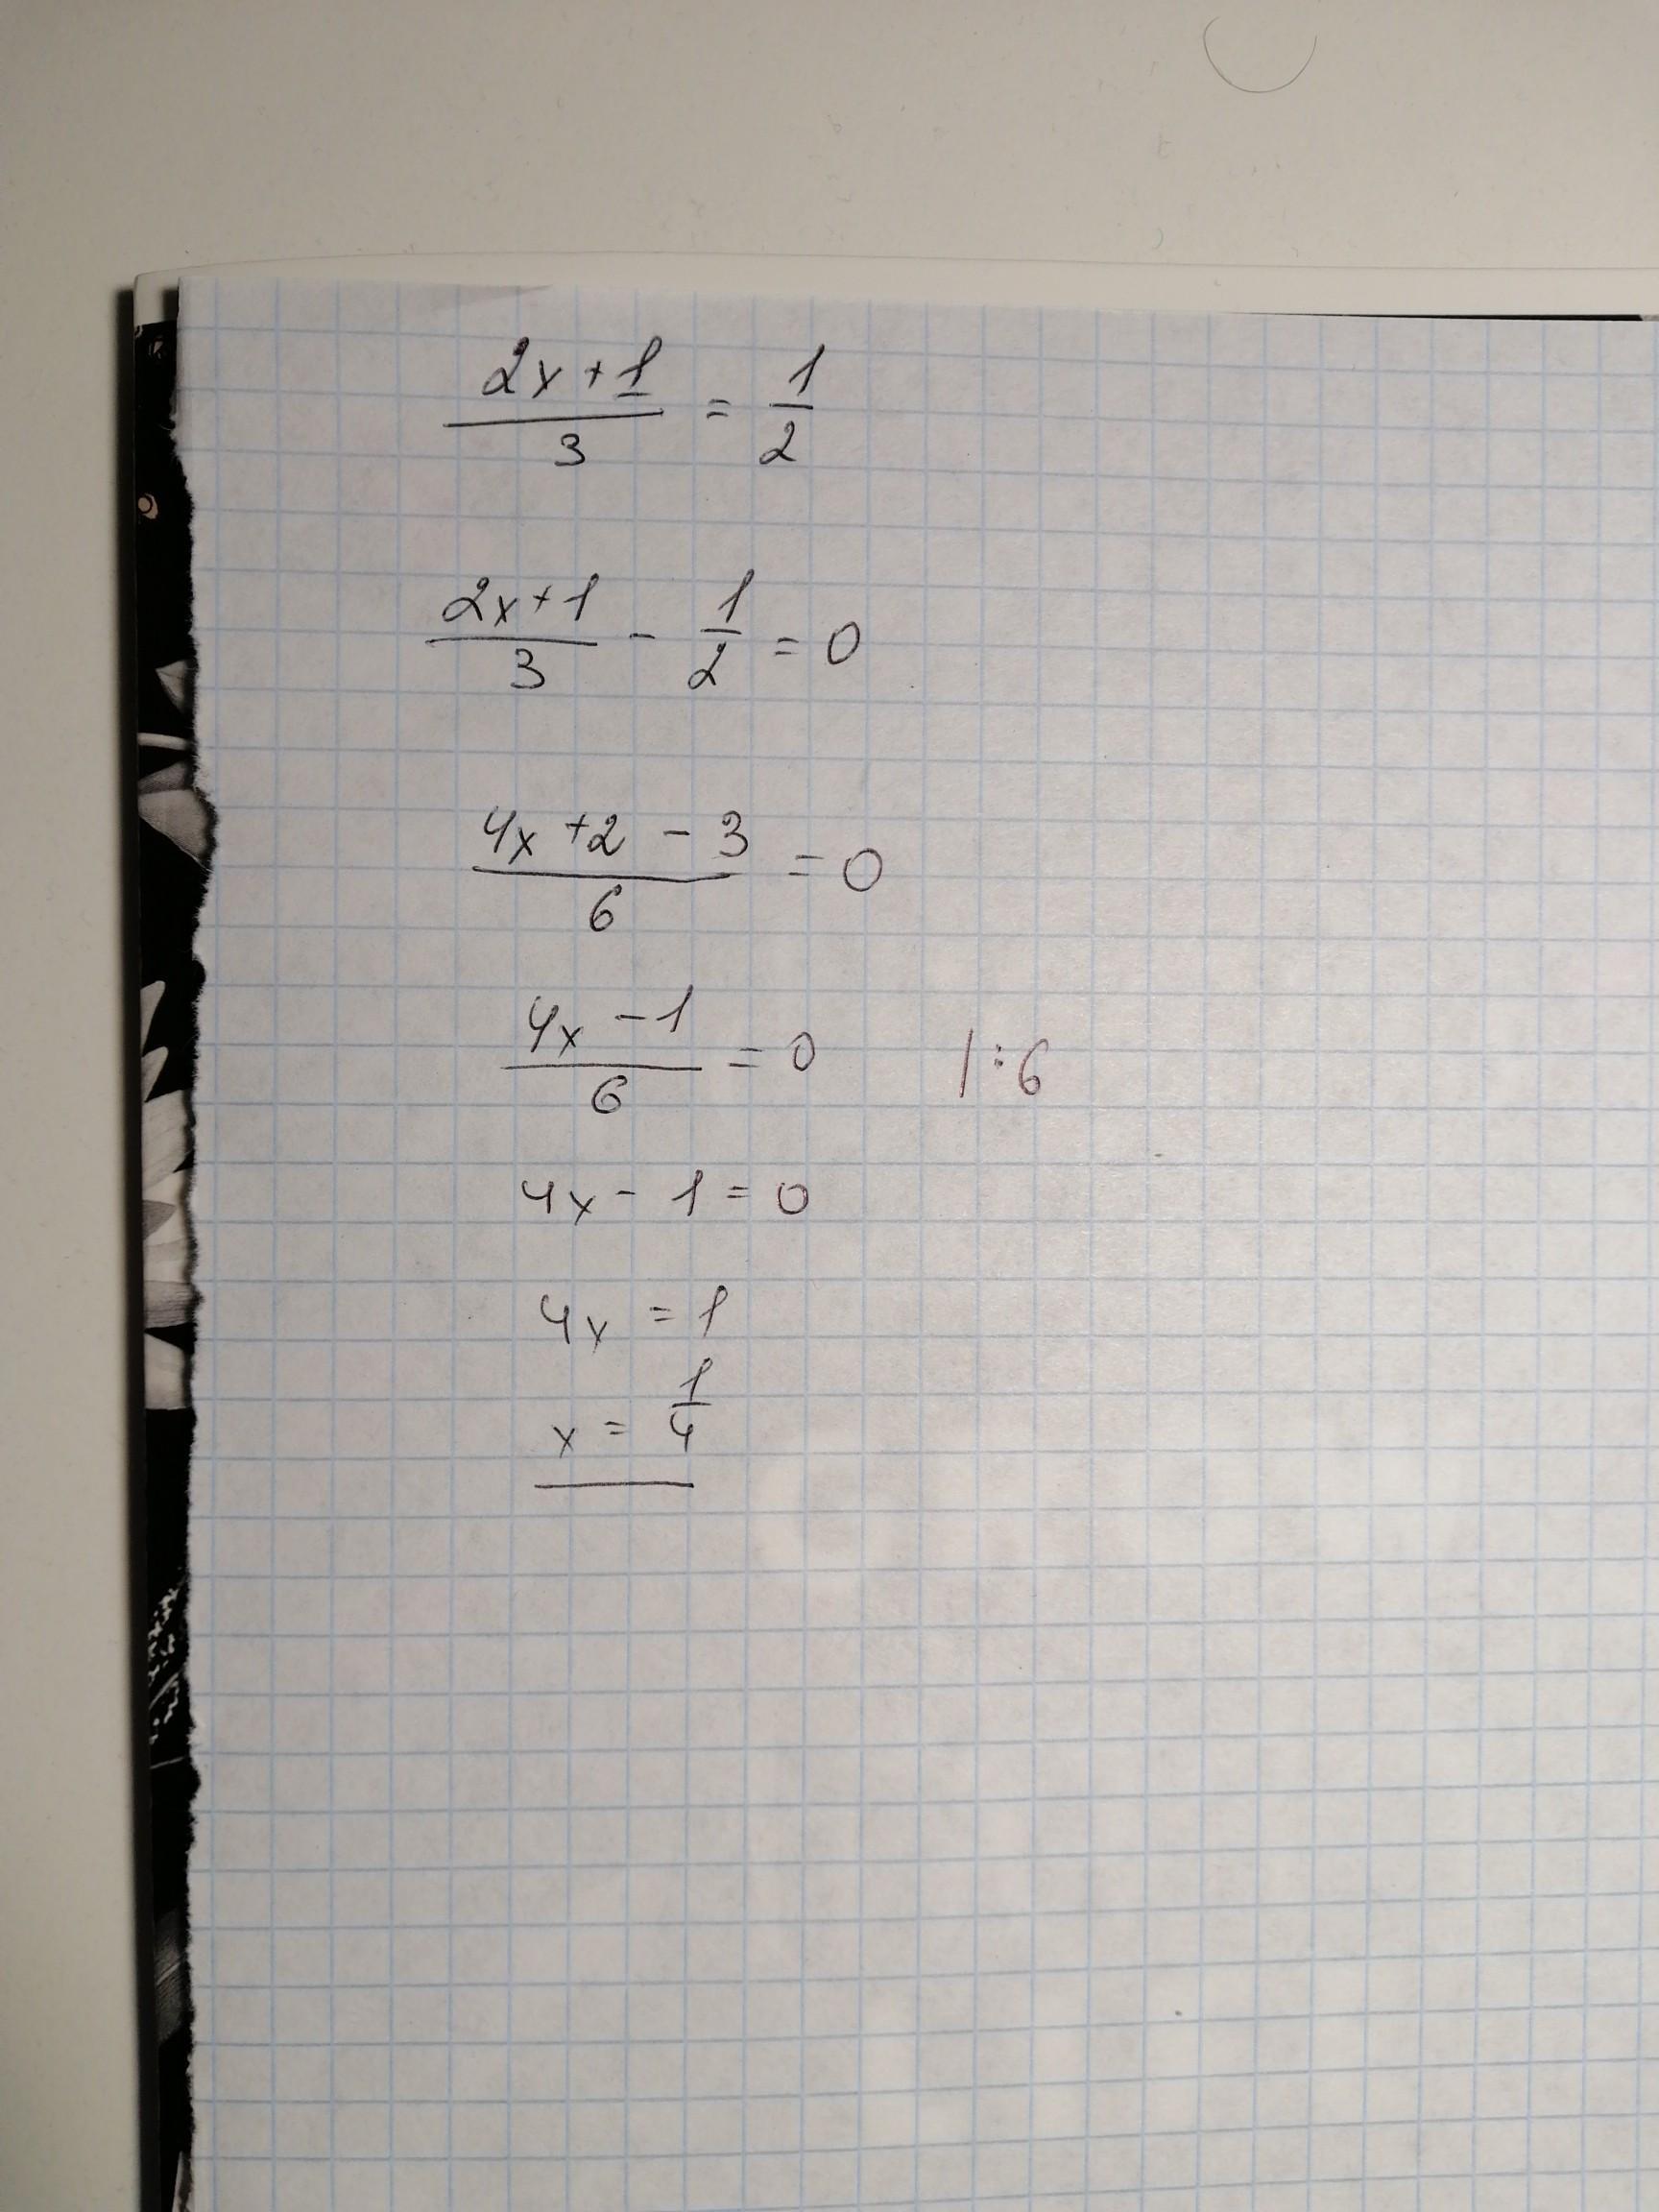 (2x+1)/3 = 1/2
(2x+1)/3 - 1/2 = 0
(4x+2-3)/6 = 0
(4x-1)/6 = 0 |:6
4x - 1 = 0
4x = 1
x = 1/4